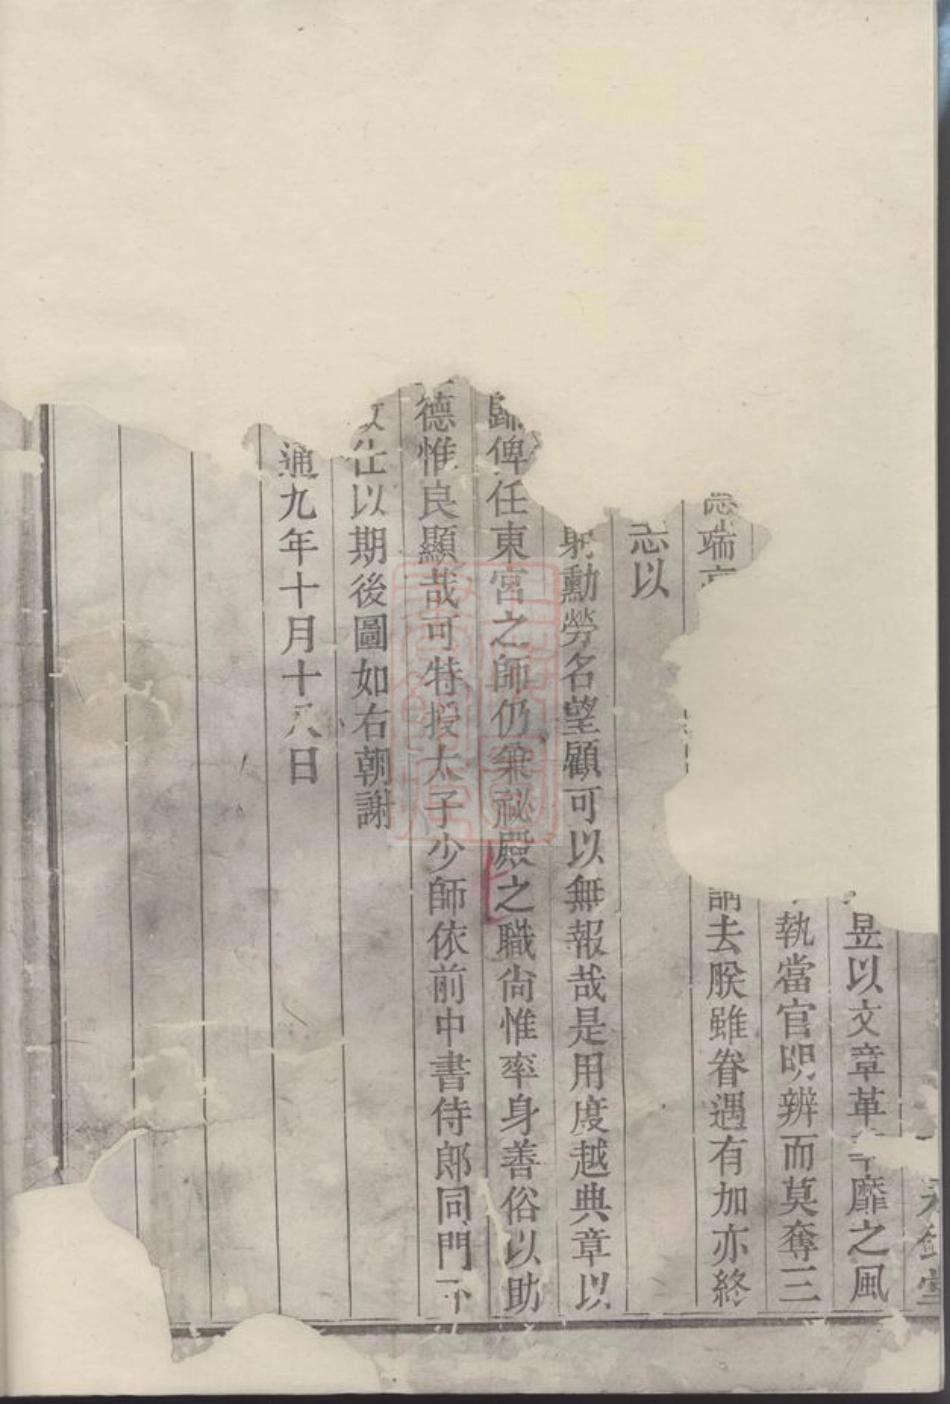 昱以文章革靡之風
執當官明辨而莫奪三
端
去朕雖眷遇有加亦終
志以
勳勞名望顧可以無報哉是用度越典章以
歸俾任東宮之師仍兼祕殿之職尚惟率身善俗以助
德惟良顯哉可特授太子少師依前中書侍郎同門下
仕以期後圖如右朝謝
通九年十月十八日